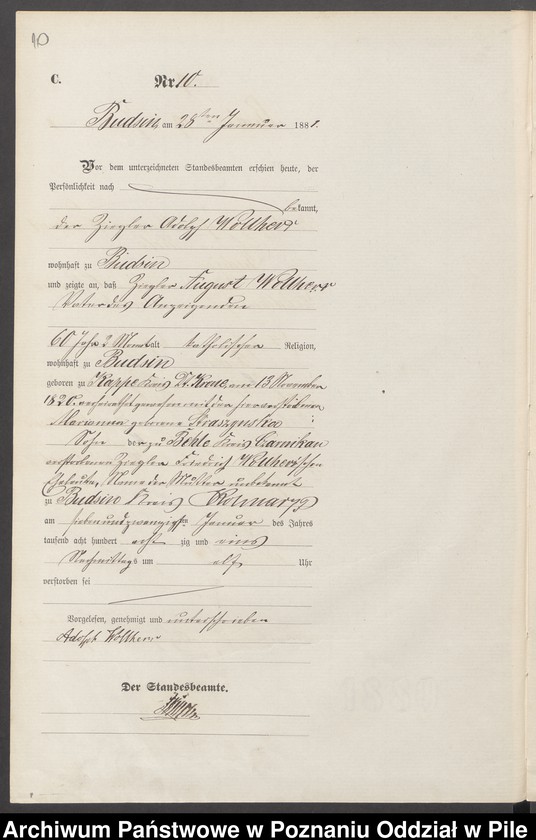 10
C. Nr. 10.
Budsin, am 28ten Januar 1881.
Vor dem unterzeichneten Standesbeamten erschien heute, der
Persönlichkeit nach
bekannt,
der Ziegler Adolph Wollherr
wohnhaft zu Budsin
und zeigte an, daß Ziegler August Wollherr
Vater des Anzeigenden
60 Jahr 2 Monat alt katholischer Religion,
wohnhaft zu Budsin
geboren zu Kappe Kreis am 13 November
1820, verheirathet gewesen mit der hier verstorbenen
Marianna geborene
Sohn der zu Behle Kreis Czarnikau
verstorbenen Ziegler Friedrich Wollherr'schen
Eheleute, Name der Mutter unbekannt
zu Budsin Kreis Kolmar
am siebenundzwanzigsten Januar des Jahres
tausend acht hundert achtzig und eins
Nachmittags um elf Uhr
verstorben sei
Vorgelesen, genehmigt und unterschrieben
Adolph Wollherr
Der Standesbeamte.
Archiwum Państwowe w Poznaniu Oddział w Pile